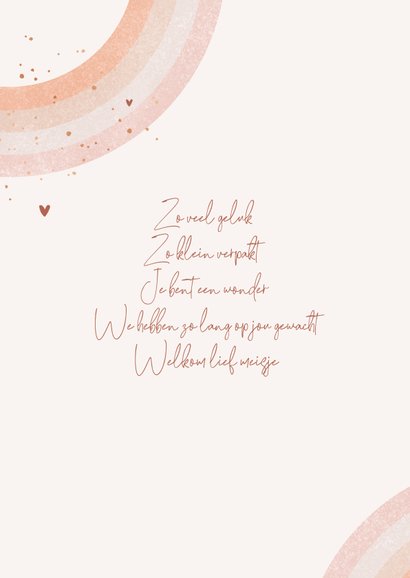 Zo veel geluk
Zo klein verpakt
Je bent een wonder
We hebben zo lang op jou gewacht
Welkom lief meisje